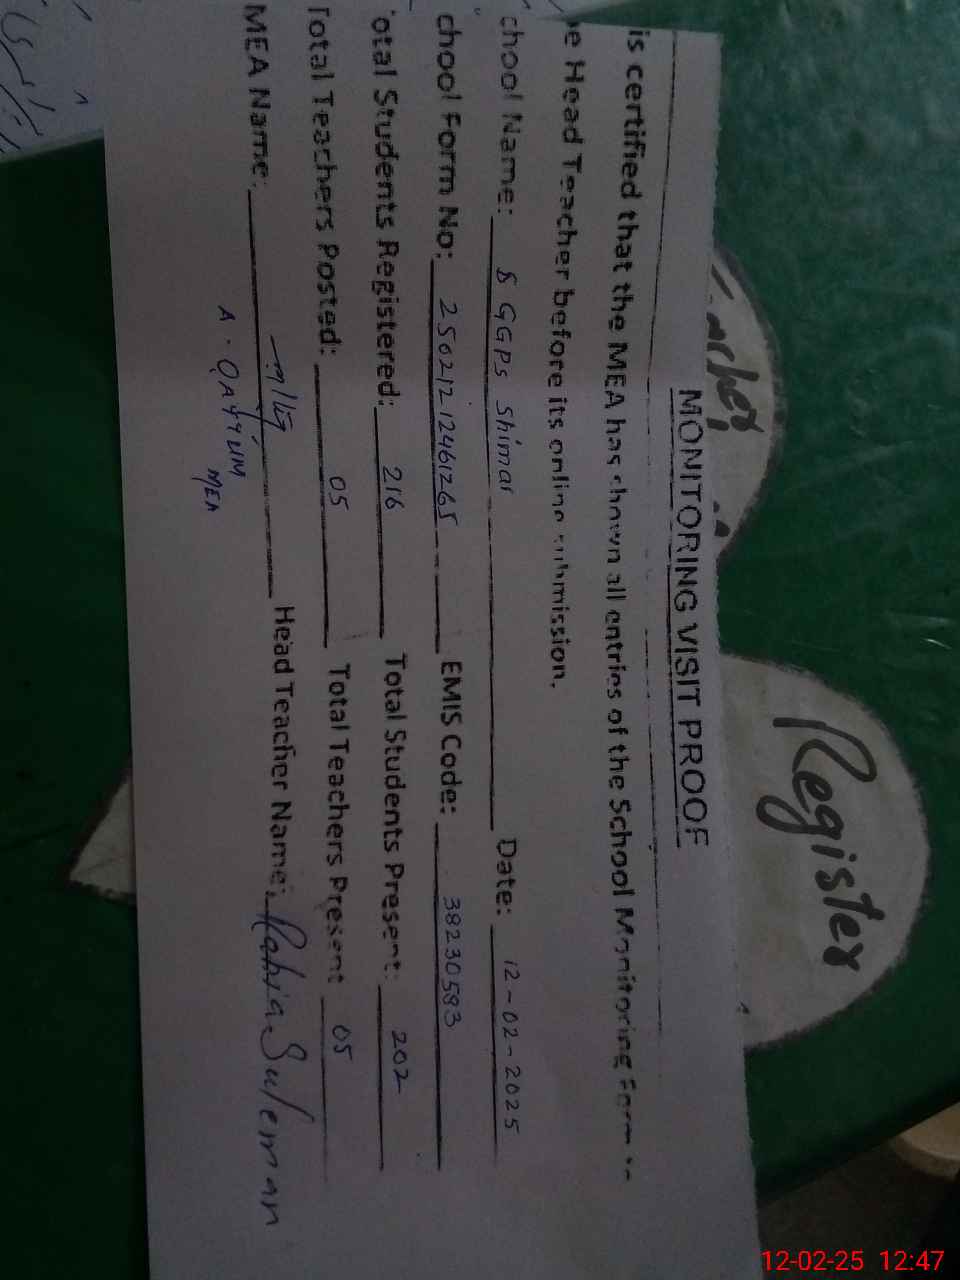 MONITORING VISIT PROOF
is certified that the MEA has shown all entries of the School Monitoring Form to
he Head Teacher before its online submission.
chool Name: GGPS Shimar Date: 12-02-2025
chool Form No: 25021212461265 EMIS Code: 38230583
otal Students Registered: 216 Total Students Present: 202
Total Teachers Posted: 05 Total Teachers Present 05
MEA Name: Head Teacher Name: Rabia Suleman
A. QAYYUM
MEA
Register
12-02-25 12:47